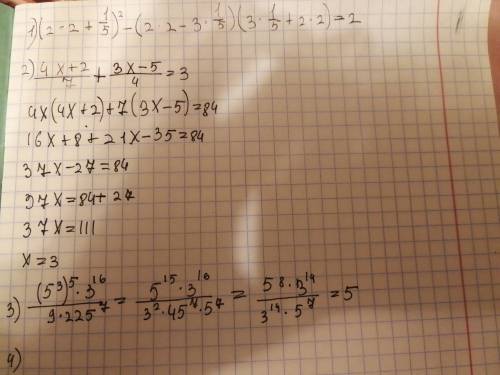 1) (2-2+1/5)² - (2·2-3·1/5)(3·1/5+2·2)=2
2) (4x+2)/7 + (3x-5)/4 = 3
4x(4x+2)+7(3x-5)=84
16x+8+21x-35=84
37x-27=84
37x=84+27
37x=111
x=3
3) ((5³)⁵·3¹⁶)/(9·225⁷) = (5¹⁵·3¹⁶)/(3²·45⁷·5⁷) = (5⁸·3¹⁴)/(3¹⁴·5⁷) = 5
4)